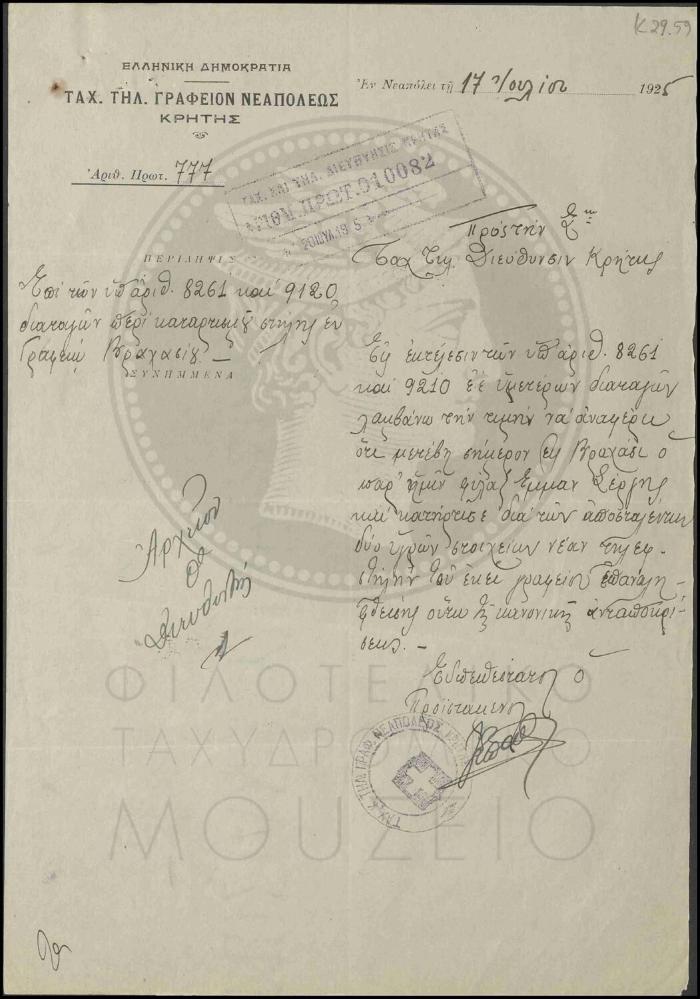 Κ29.59
ΕΛΛΗΝΙΚΗ ΔΗΜΟΚΡΑΤΙΑ
ΤΑΧ. ΤΗΛ. ΓΡΑΦΕΙΟΝ ΝΕΑΠΟΛΕΩΣ
ΚΡΗΤΗΣ
Ἀριθ. Πρωτ. 777
Ἐν Νεαπόλει τῇ 17 Ἰουλίου 1925
ΤΑΧ. ΚΑΙ ΤΗΛ. ΔΙΕΥΘΥΝΣΙΣ ΚΡΗΤΗΣ
ΑΡΙΘΜ. ΠΡΩΤ. 010082
20 ΙΟΥΛ. 19 5
Πρὸς τὴν
Ταχ Τηλ. Διεύθυνσιν Κρήτης
ΠΕΡΙΛΗΨΙΣ
Ἐπὶ τῶν ὑπ' ἀριθ. 8261 καὶ 9120
διαταγῶν περὶ καταρτισμοῦ στήλης ἐν
Γραφείῳ Βραχασίου —
ΣΥΝΗΜΜΕΝΑ
Εἰς ἐκτέλεσιν τῶν ὑπ' ἀριθ. 8261
καὶ 9210 ἐ.ἔ. ὑμετέρων διαταγῶν
λαμβάνω τὴν τιμὴν νὰ ἀναφέρω
ὅτι μετέβη σήμερον εἰς Βραχάσι ὁ
παρ' ἡμῖν φύλαξ Ἐμμαν Σέργης
καὶ κατήρτισε διὰ τῶν ἀποσταλέντων
δύο ὑγρῶν στοιχείων νέαν τηλεφ.
στήλην τοῦ ἐκεῖ γραφείου ἐπαναλη-
φθείσης οὕτω τῆς κανονικῆς ἀνταποκρί-
σεως. —
Εὐπειθέστατος ὁ
Προϊστάμενος
Ἀρχεῖον
Ὁ
Διευθυντής
ΤΑΧ. Κ. ΤΗΛ. ΓΡΑΦ. ΝΕΑΠΟΛΕΩΣ
ΦΙΛΟΤΕΛΙΚΟ
ΤΑΧΥΔΡΟΜΙΚΟ
ΜΟΥΣΕΙΟ